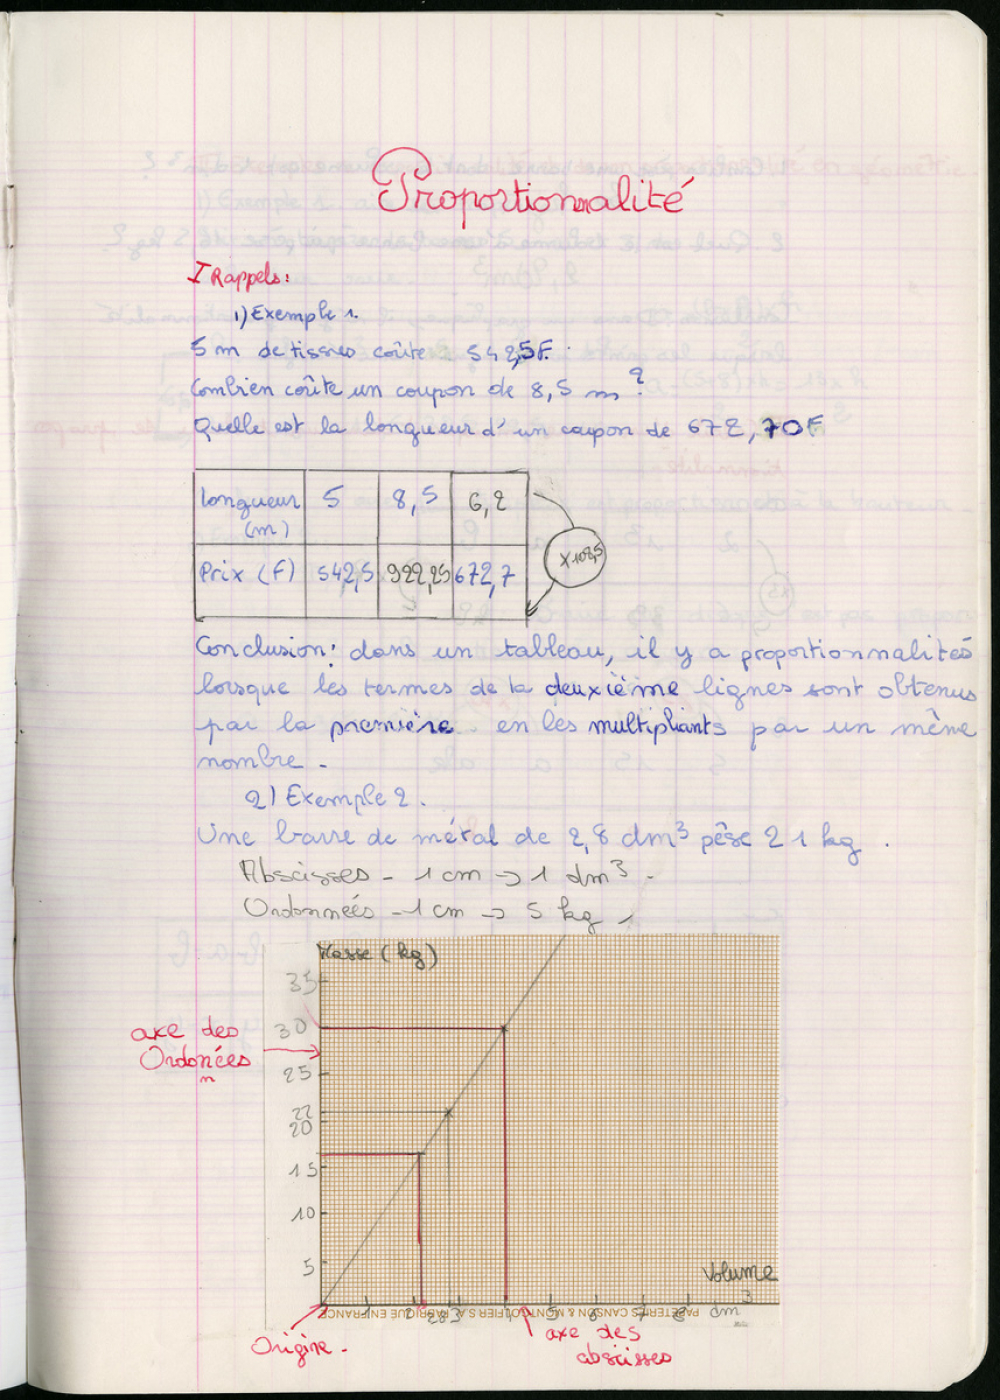 Proportionnalité
I Rappels:
1) Exemple 1.
5 m de tissus coûte 542,5F.
Combien coûte un coupon de 8,5 m ?
Quelle est la longueur d'un coupon de 672,70F
longueur (m) 5 8,5 6,2
Prix (F) 542,5 922,25 672,7
x 108,5
Conclusion: dans un tableau, il y a proportionnalités
lorsque les termes de la deuxième lignes sont obtenus
par la première en les multipliants par un même
nombre.
2) Exemple 2.
Une barre de métal de 2,8 dm³ pèse 21 kg.
Abscisses - 1 cm -> 1 dm³.
Ordonnées - 1 cm -> 5 kg
Masse (kg)
35
axe des
Ordonées
n
30
25
22
20
15
10
5
Volume
dm3
1 2 2,8 3 4 5 6 7 8
PAPETERIES CANSON & MONTGOLFIER S.A. FABRIQUÉ EN FRANCE
Origine.
axe des
abscisses